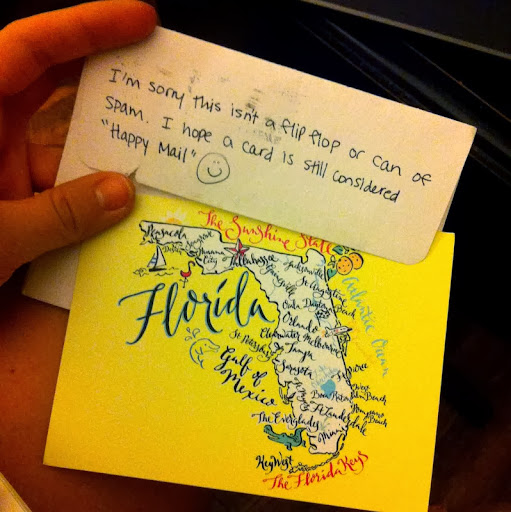 I'm sorry this isn't a flip flop or can of
spam. I hope a card is still considered
"Happy Mail"
The Sunshine State
Pensacola
Destin
Seagrove
Panama
City
Tallahassee
Jacksonville
St. Augustine
Gainesville
Ocala
Daytona
Beach
Atlantic Ocean
Florida
Orlando
Clearwater
Melbourne
St. Petersburg
Tampa
Gulf of
Mexico
Sarasota
Boca Raton
Ft. Lauderdale
The Everglades
Miami
Key West
The Florida Keys